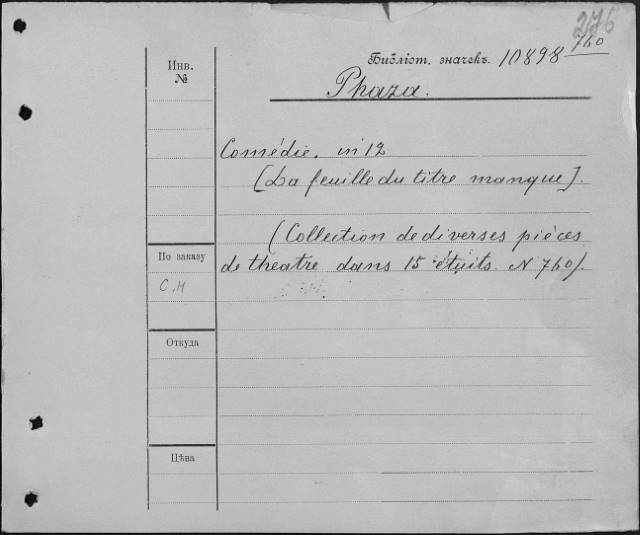 276
Инв.
№
Библіот. значекъ. 10898 760
Phaza.
Comédie. in 12
[La feuille du titre manque].
(Collection de diverses pièces
de theatre dans 15 étuits. N 760).
По заказу
С.Н
Откуда
Цѣна